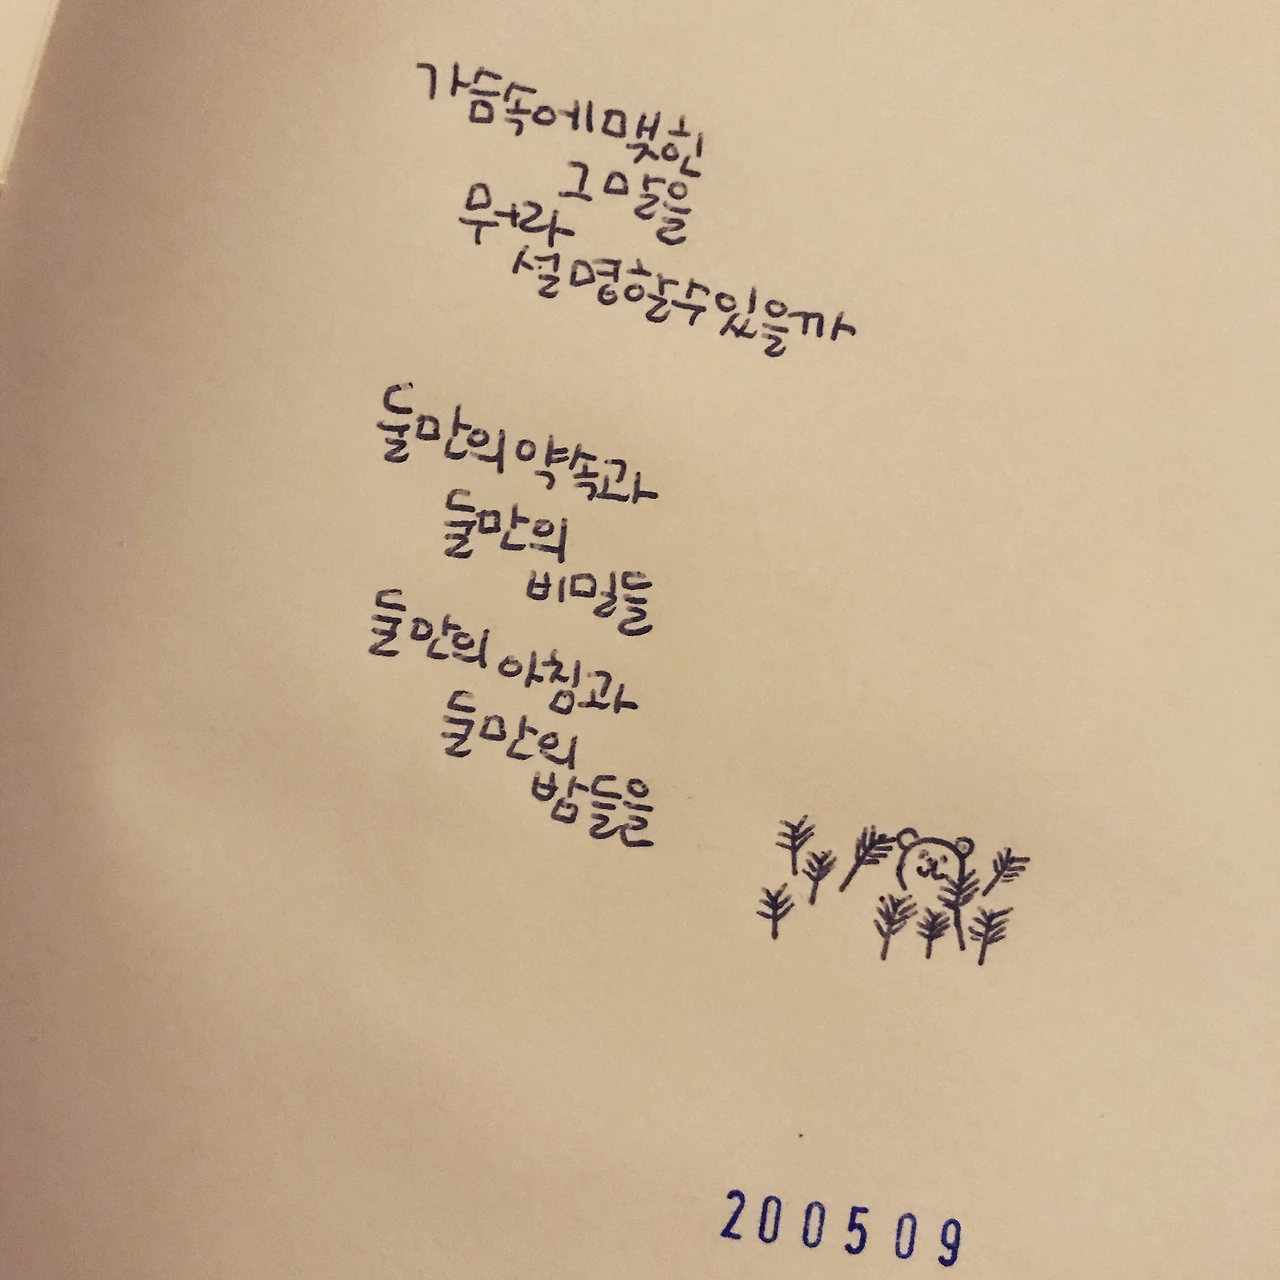 가슴속에 맺힌
그 말을
무어라
설명할 수 있을까
둘만의 약속과
둘만의
비밀들
둘만의 아침과
둘만의
밤들을
200509